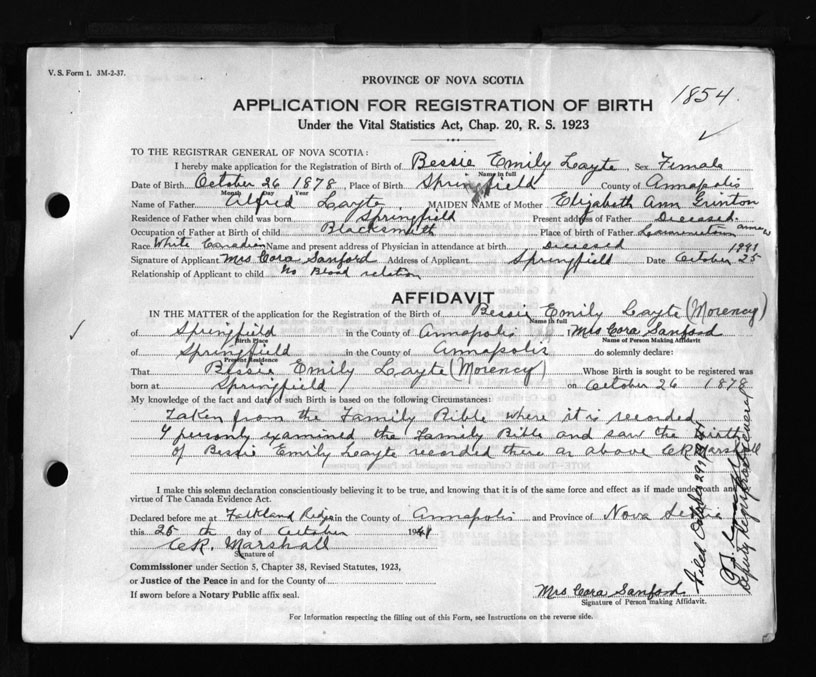 V. S. Form 1. 3M-2-37.
PROVINCE OF NOVA SCOTIA
1854.
APPLICATION FOR REGISTRATION OF BIRTH
Under the Vital Statistics Act, Chap. 20, R. S. 1923
TO THE REGISTRAR GENERAL OF NOVA SCOTIA:
I hereby make application for the Registration of Birth of Bessie Emily Layte Sex Female
Name in full
Date of Birth October 26 1878 Place of Birth Springfield County of Annapolis
Month Day Year
Name of Father Alfred Layte MAIDEN NAME of Mother Elizabeth Ann
Residence of Father when child was born Springfield Present address of Father Deceased.
Occupation of Father at Birth of child Blacksmith Place of birth of Father Lawrencetown
Race White Canadian Name and present address of Physician in attendance at birth deceased 1941
Signature of Applicant Mrs Cora Sanford Address of Applicant Springfield Date October 25
Relationship of Applicant to child No Blood relation
AFFIDAVIT
IN THE MATTER of the application for the Registration of the Birth of Bessie Emily Layte (Morency)
Name in full
of Springfield in the County of Annapolis I, Mrs Cora Sanford
Birth Place Name of Person Making Affidavit
of Springfield in the County of Annapolis do solemnly declare:
Present Residence
That Bessie Emily Layte (Morency) Whose Birth is sought to be registered was
born at Springfield on October 26 1878
My knowledge of the fact and date of such Birth is based on the following Circumstances:
Taken from the Family Bible where it is recorded
I personly examined the Family Bible and saw the birth
of Bessie Emily Layte recorded there as above CR Marshall
I make this solemn declaration conscientiously believing it to be true, and knowing that it is of the same force and effect as if made under oath and
virtue of The Canada Evidence Act.
Declared before me at Falkland Ridge in the County of Annapolis and Province of Nova Scotia
this 25 th day of October 1941
CR. Marshall
Signature of
Commissioner under Section 5, Chapter 38, Revised Statutes, 1923,
or Justice of the Peace in and for the County of
If sworn before a Notary Public affix seal.
Mrs Cora Sanford
Signature of Person making Affidavit.
For Information respecting the filling out of this Form, see Instructions on the reverse side.
Filed October 29th 1941
Deputy Registrar General